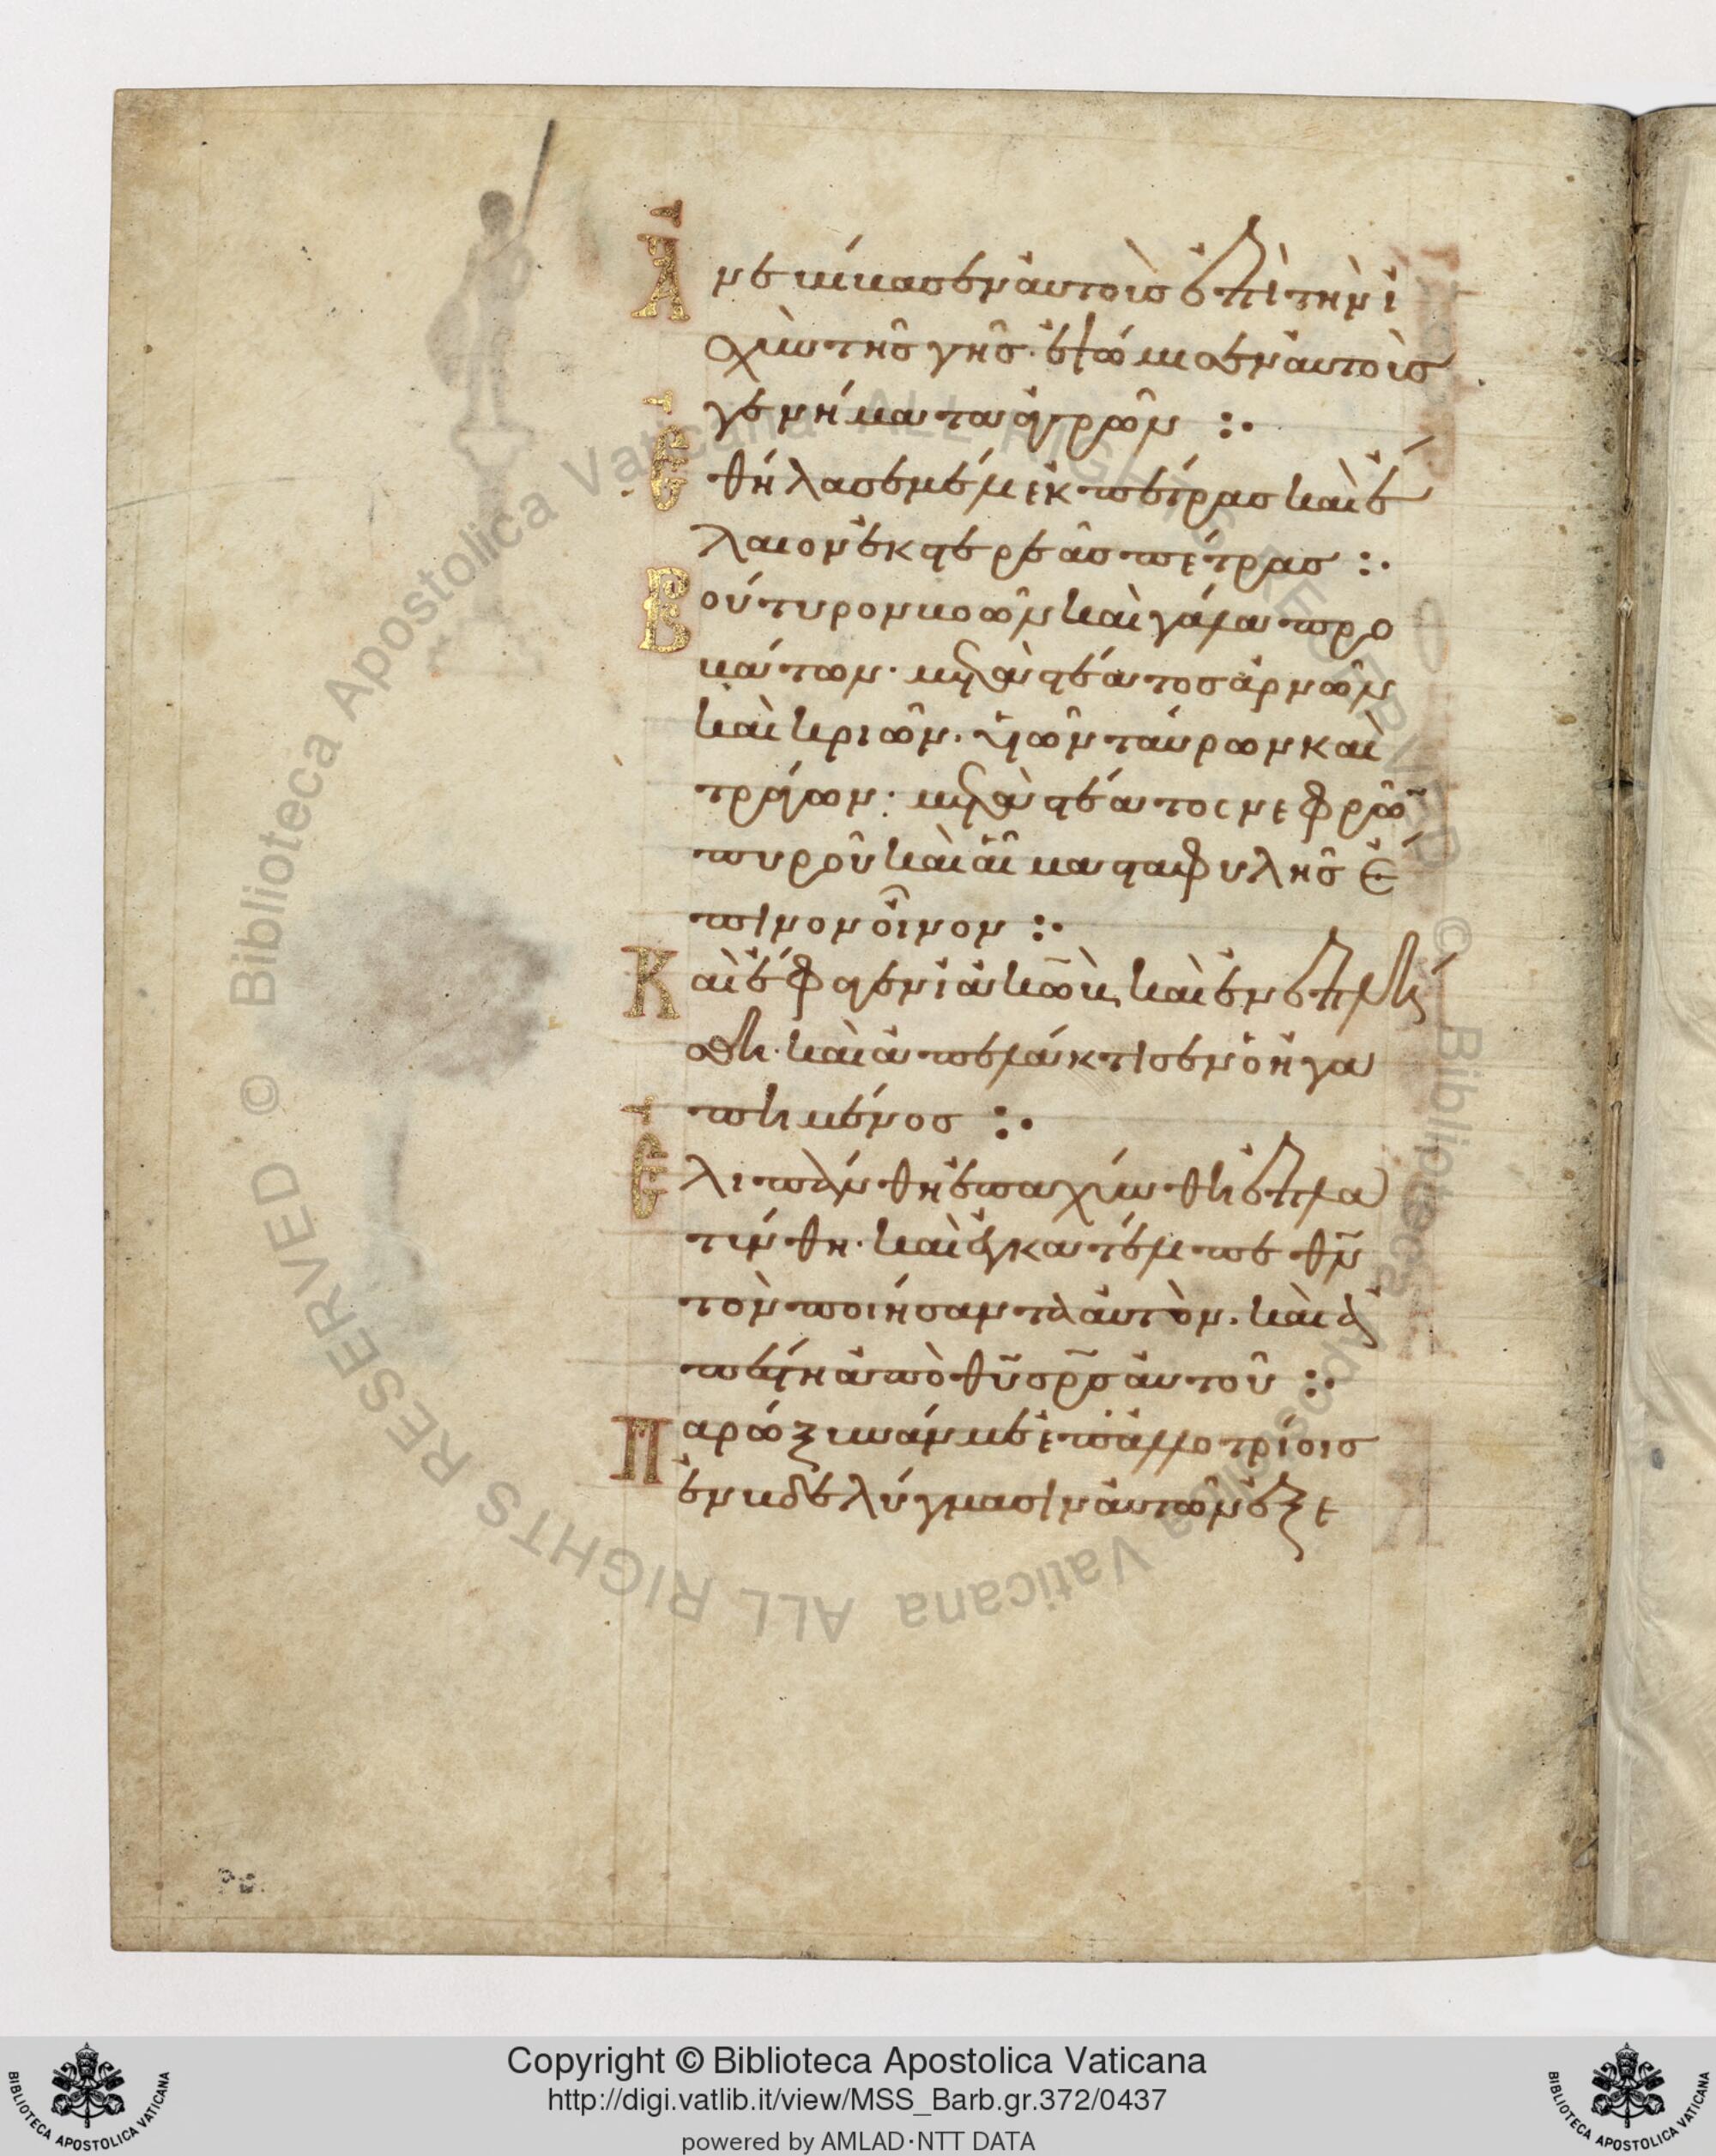 Ἀνεβίβασεν αὐτοὺσ ἐπὶ τὴν ἰ
σχὺν τῆσ γῆσ· ἐψώμισεν αὐτοὺσ
γεννήματα ἀγρῶν :·
Ἐθήλασεν μέλι ἐκ πέτρασ καὶ ἔ
λαιον ἐκ στερεᾶσ πέτρασ :·
Βούτυρον βοῶν καὶ γάλα προ
βάτων· μετὰ στέατοσ ἀρνῶν
καὶ κριῶν· υἱῶν ταύρων καὶ
τράγων· μετὰ στέατοσ νεφρῶ̄
πυροῦ καὶ αἷμα σταφυλῆσ ἔ
πινον οἶνον :·
Καὶ ἔφαγεν ἰακὼβ καὶ ἐνεπλή
σθη· καὶ ἀπελάκτισεν ὁ ἠγα
πημένοσ :·
Ἐλιπάνθη ἐπαχύνθη ἐπλα
τύνθη· καὶ ἐγκατέλιπε θ̄ν̄
τὸν ποιήσαντα αὐτὸν· καὶ ἀ
πέστη ἀπὸ θ̄ῡ σ̄ρ̄σ̄ αὐτοῦ :·
Παρώξυνάν με ἐπ᾽ ἀλλοτρίοισ
ἐν βδελύγμασιν αὐτῶν ἐξε
Copyright © Biblioteca Apostolica Vaticana
http://digi.vatlib.it/view/MSS_Barb.gr.372/0437
powered by AMLAD·NTT DATA
© Biblioteca Apostolica Vaticana ALL RIGHTS RESERVED © Biblioteca Apostolica Vaticana ALL RIGHTS RESERVED
BIBLIOTECA APOSTOLICA VATICANA
BIBLIOTECA APOSTOLICA VATICANA